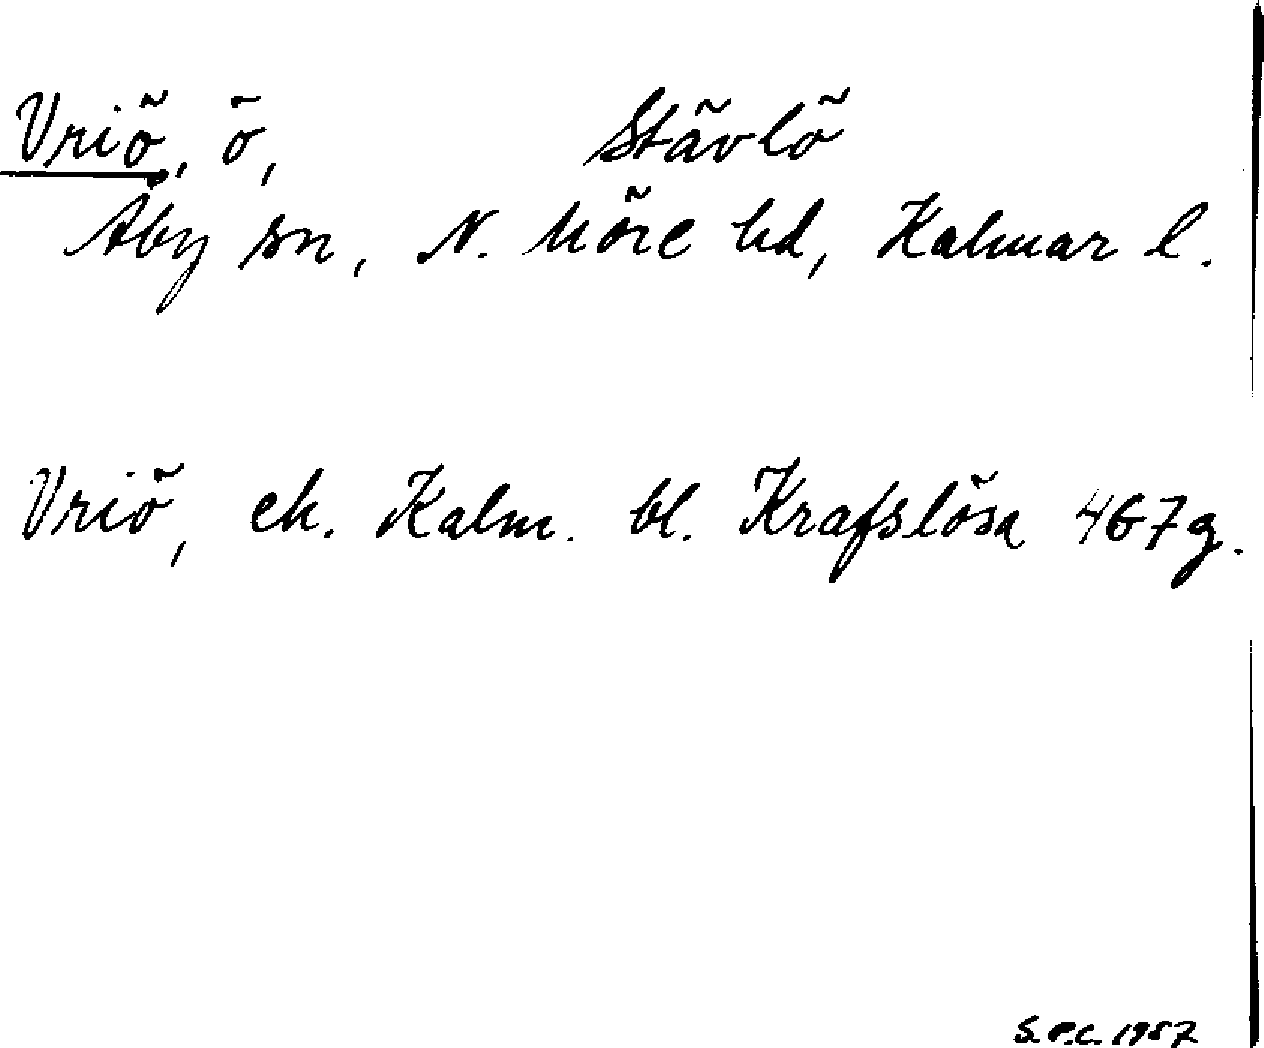 Vriö, ö, Stävlö
Åby sn, N. Möre hd, Kalmar l.
Vriö, ek. Kalm. bl. Krafslösa 4G7g.
S.P.C. 1957